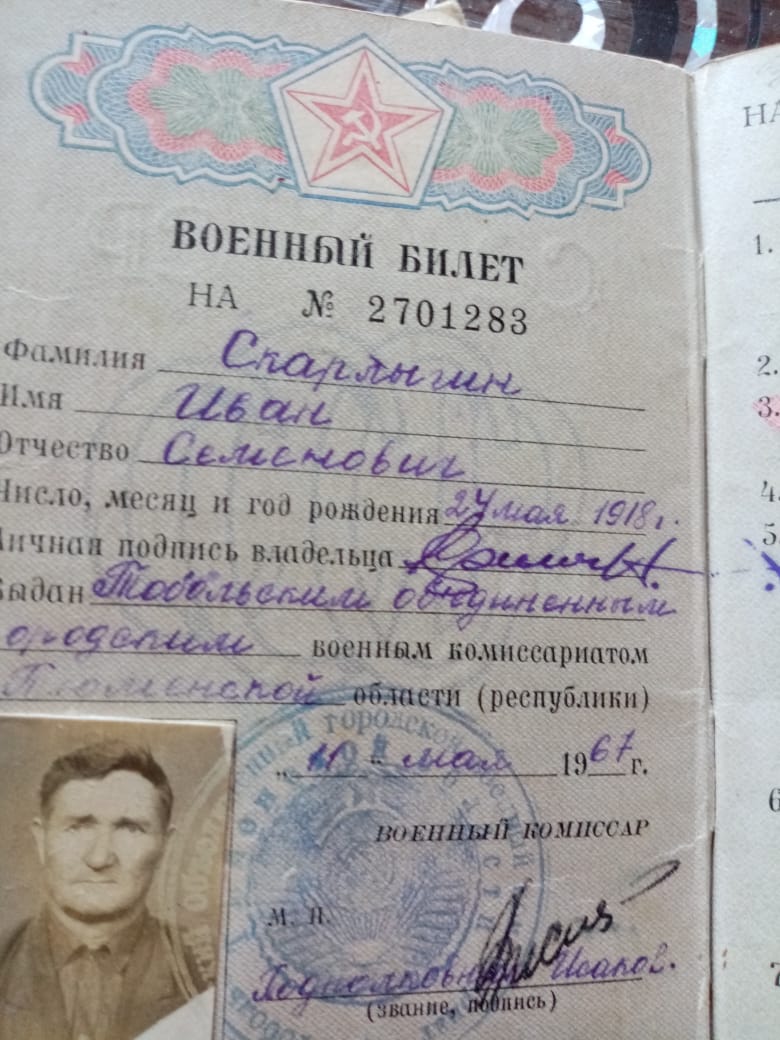 ВОЕННЫЙ БИЛЕТ
НА № 2701283
Фамилия Скарлыгин
Имя Иван
Отчество Семенович
Число, месяц и год рождения 24 мая 1918 г.
Личная подпись владельца
Выдан Тобольским объединенным
городским военным комиссариатом
Тюменской области (республики)
„11" мая 1967 г.
ВОЕННЫЙ КОМИССАР
М. П.
Подполковник Исаков.
(звание, подпись)
НА
1.
2.
3.
4.
5.
6
7